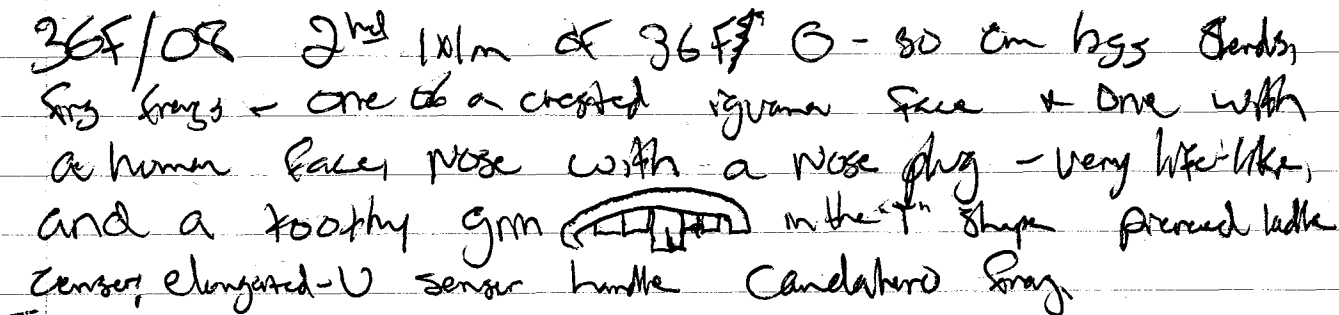 36F/08 2nd 1x1m of 36F 0-30 cm bgs Sherds,
fig frags - one of a crested iguana face & one with
a human face, nose with a nose plug - very life-like,
and a toothy grin in the "T" shape pierced ladle
censer, elongated-U censer handle Candelero frag,